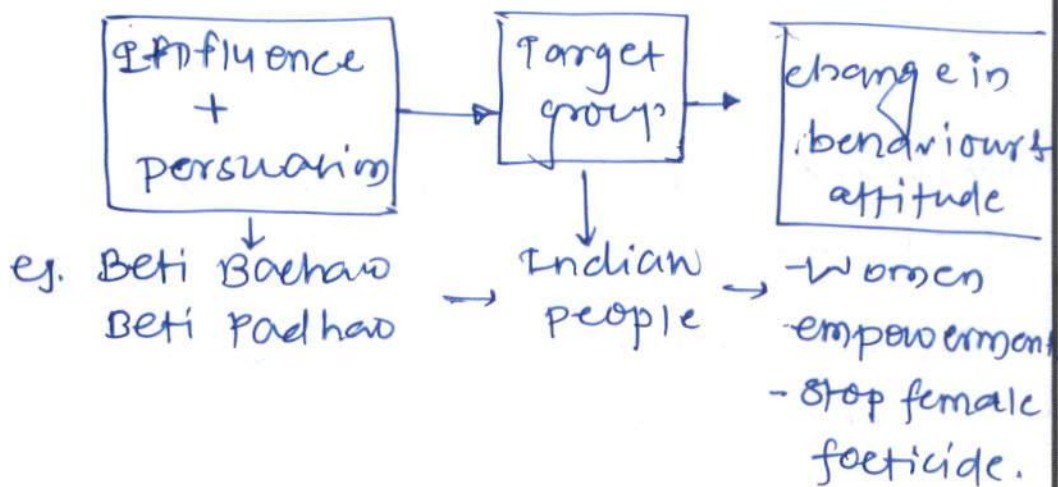 Influence
+
persuasion
Target
group
change in
behaviour &
attitude
eg. Beti Bachao
Beti Padhao
Indian
people
- Women
-empowerment
- Stop female
foeticide.